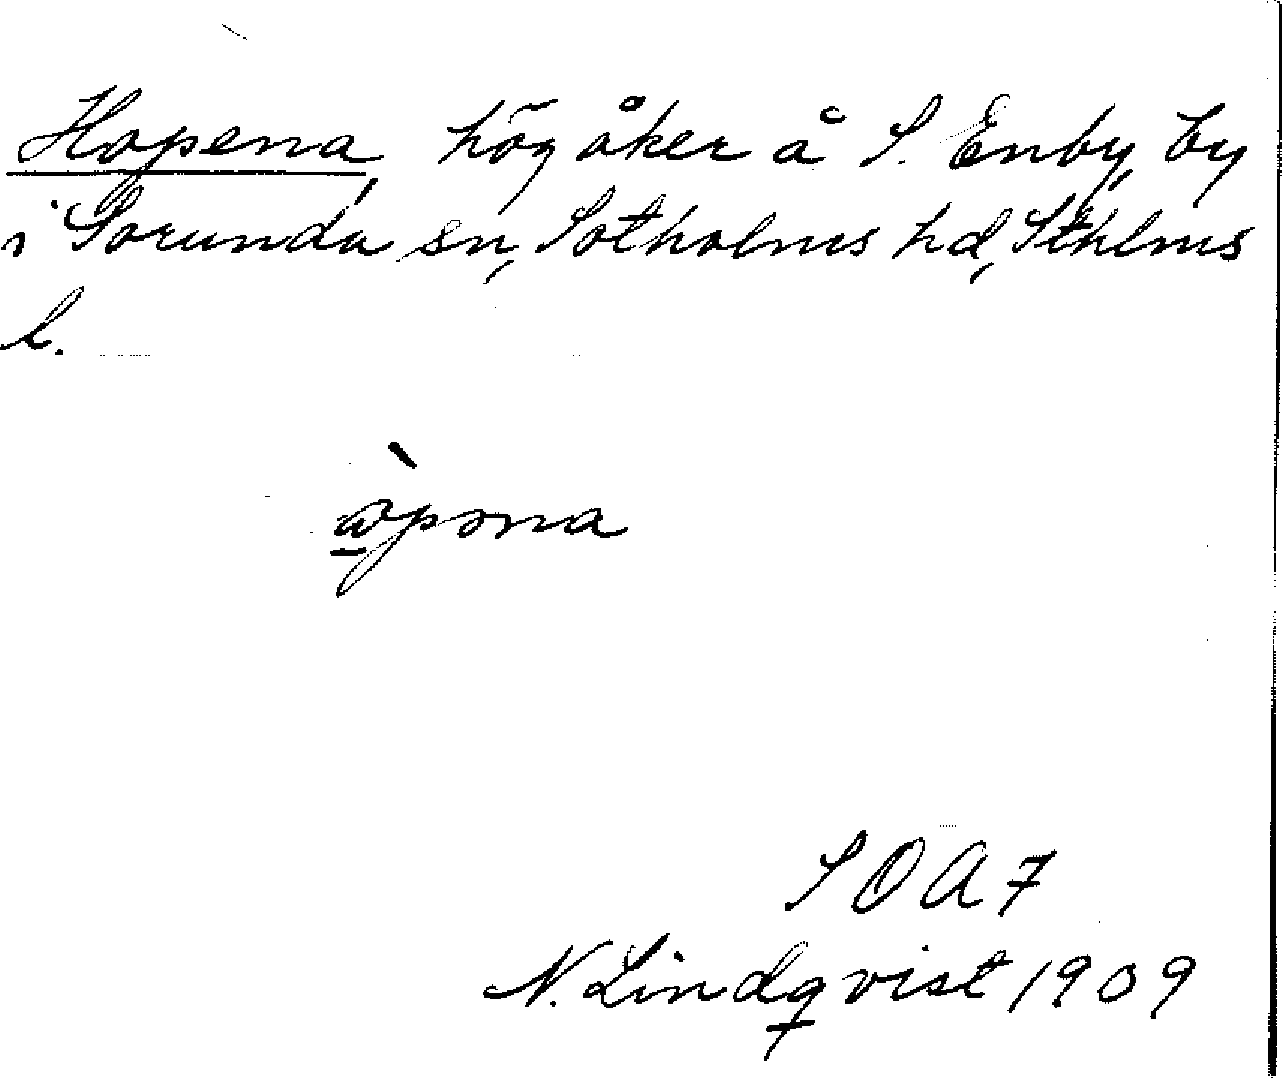 Hopena, hög åker å S. Enby, by
i Sorunda sn, Sotholms hd, Sthlms
l.
ὼpəna
SOA7
N. Lindqvist 1909